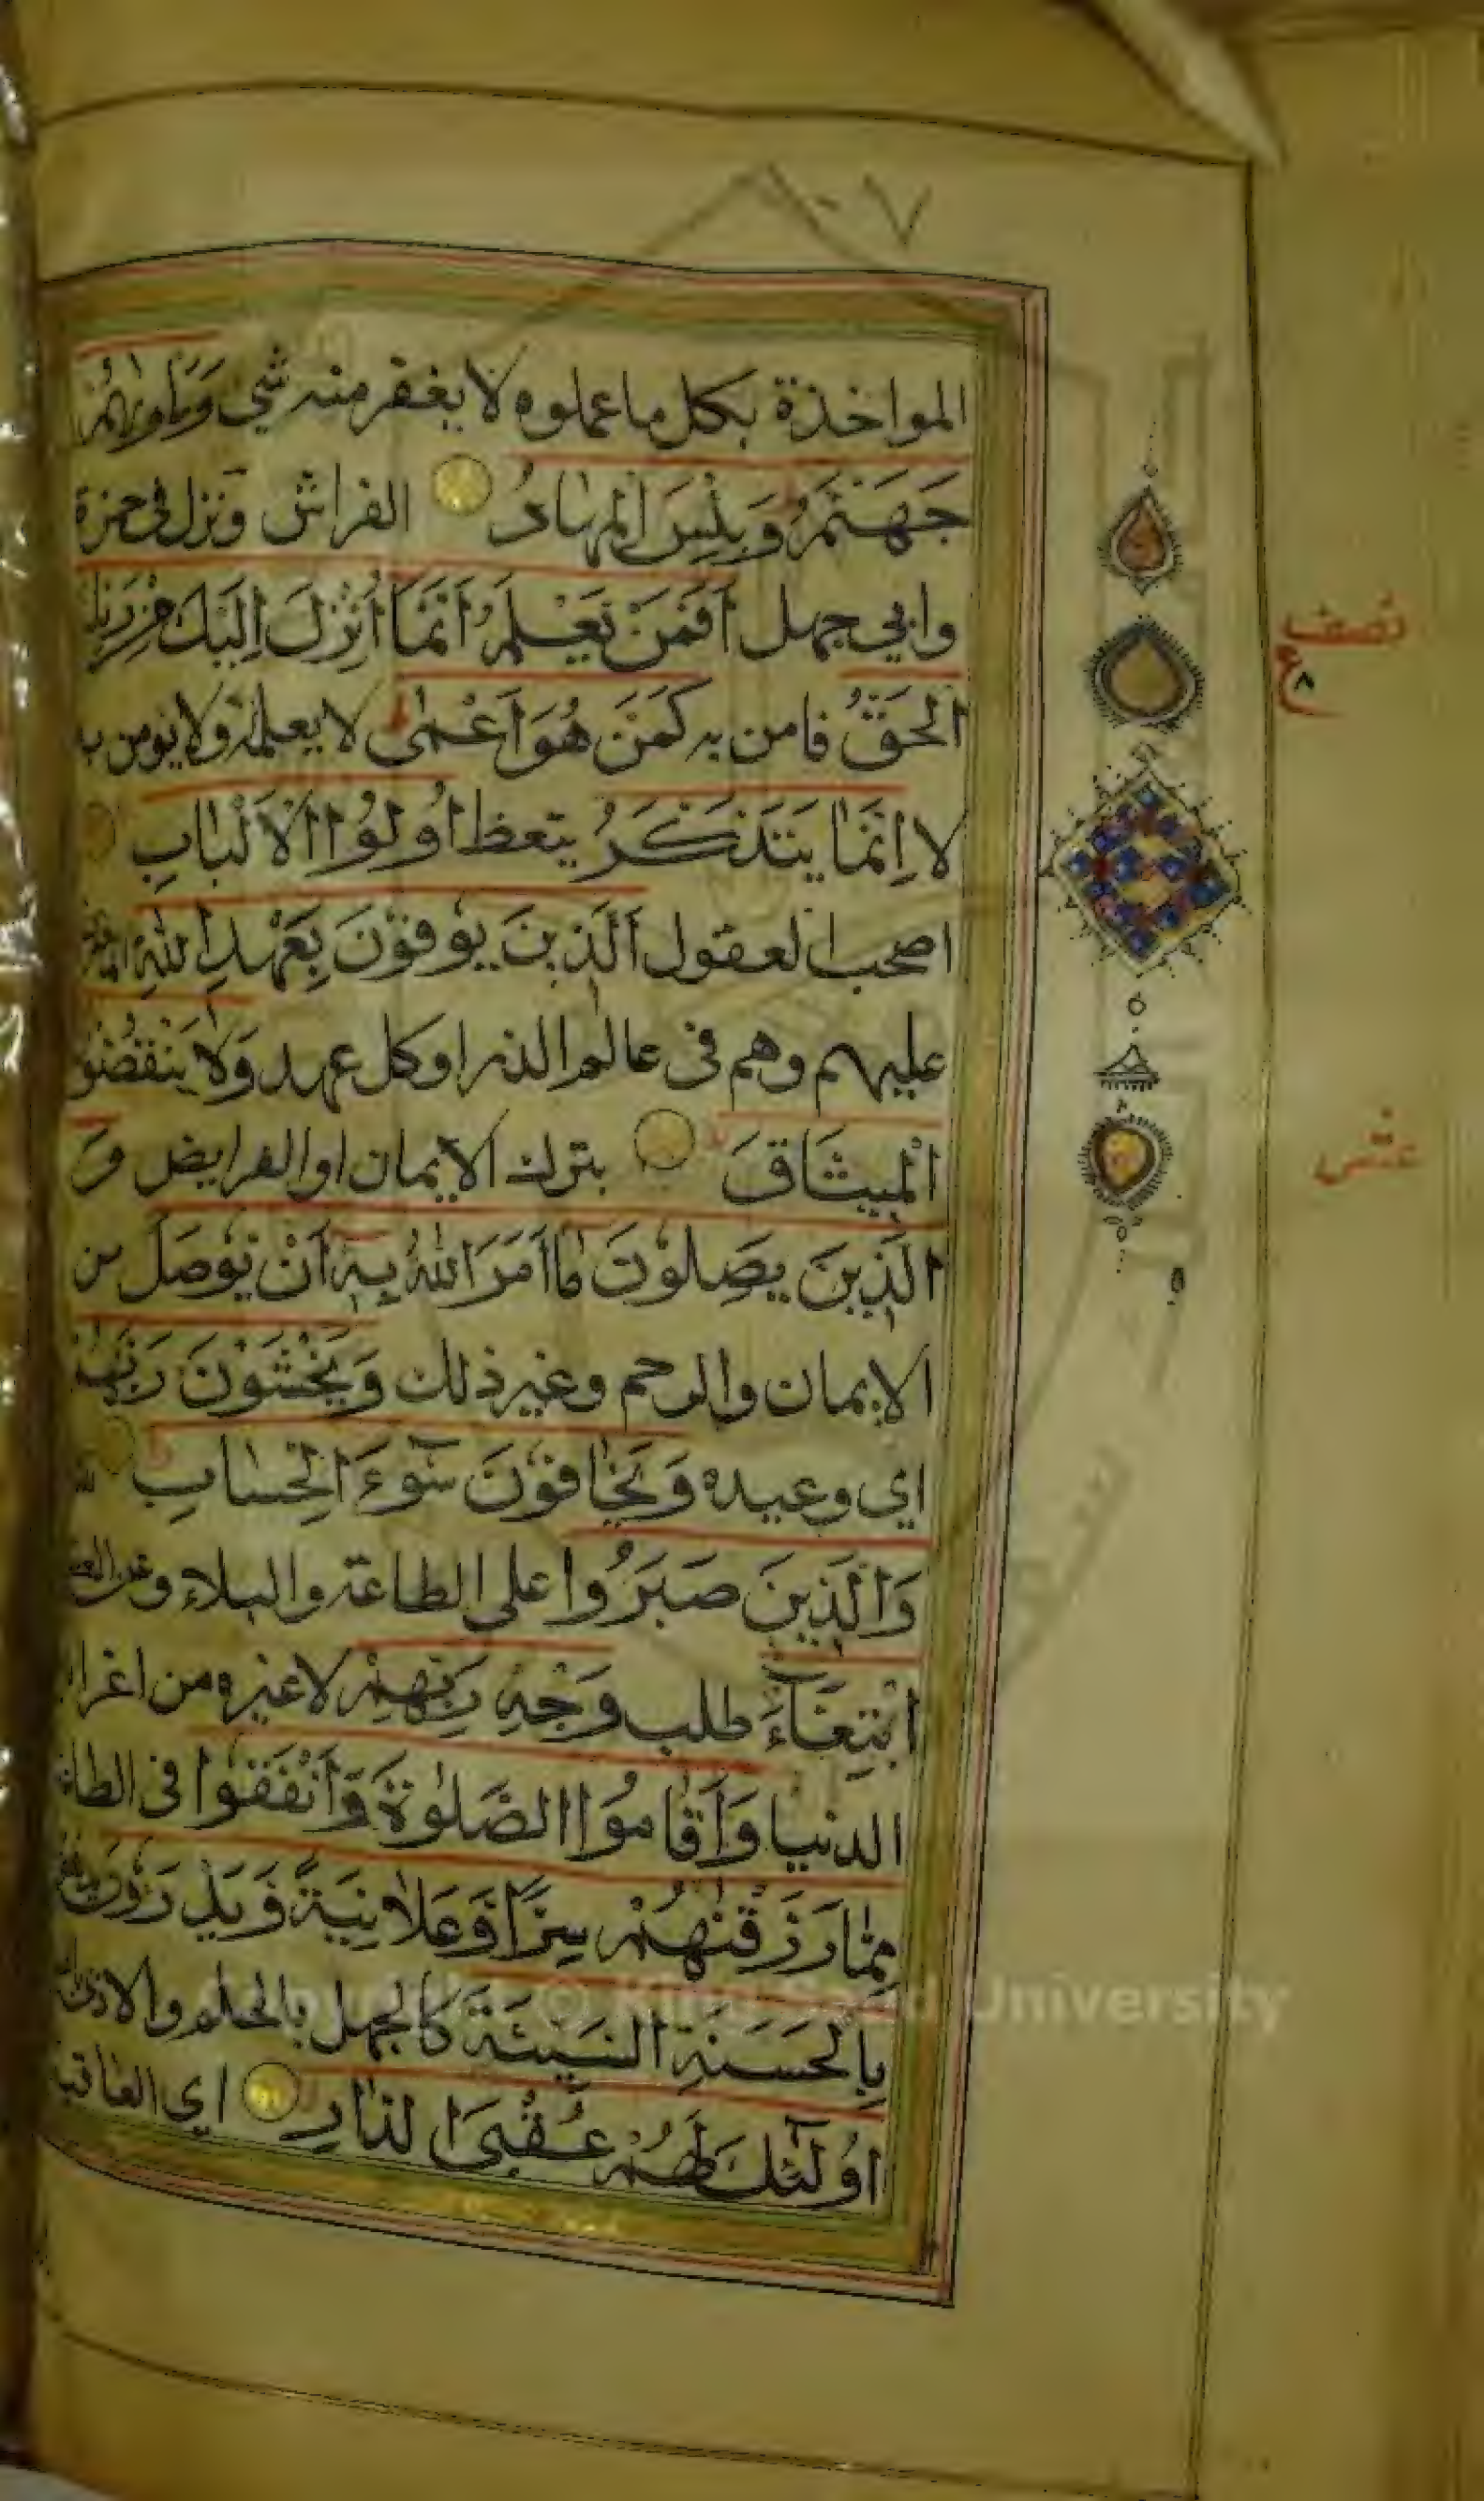 ٧
المواخذة بكل ما عملوه لا يغفر منه شي وَمَأْوٰىهُمْ
جَهَنَّمُ وَبِئْسَ الْمِهَادُ الفراش ونزل في حمزة
وابي جهل اَفَمَنْ يَعْلَمُ اَنَّمَا اُنْزِلَ اِلَيْكَ مِنْ رَبِّكَ
الْحَقُّ فامن به كَمَنْ هُوَ اَعْمٰى لا يعلمه ولا يومن به
لا اِنَّمَا يَتَذَكَّرُ يتعظ اُولُوا الْاَلْبَابِ
اصحب العقول اَلَّذِينَ يُوفُونَ بِعَهْدِ اللّٰهِ
عليهم وهم في عالم الذر او كل عهد وَلَا يَنْقُضُونَ
الْمِيثَاقَ بترك الايمان او الفرايض وَ
الَّذِينَ يَصِلُونَ مَا اَمَرَ اللّٰهُ بِهٖ اَنْ يُوصَلَ من
الايمان والرحم وغير ذلك وَيَخْشَوْنَ رَبَّهُمْ
اي وعيده وَيَخَافُونَ سُوٓءَ الْحِسَابِ
وَالَّذِينَ صَبَرُوا على الطاعة والبلاء وعن
ابْتِغَآءَ طلب وَجْهِ رَبِّهِمْ لا غيره من اغراض
الدنيا وَاَقَامُوا الصَّلٰوةَ وَاَنْفَقُوا في الطاعة
مِمَّا رَزَقْنٰهُمْ سِرًّا وَعَلَانِيَةً وَيَدْرَؤُنَ
بِالْحَسَنَةِ السَّيِّئَةَ كالجهل بالحلم والاذى
اُولٰٓئِكَ لَهُمْ عُقْبَى الدَّارِ اي العاقبة
نصف
ع
٨
عشر
© King Saud University